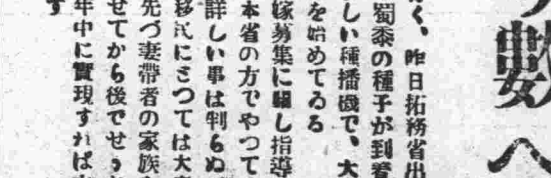 數へ
く、昨日拓務省出
蜀黍の種子が到着
しい種播機で、大
を始めてゐる
嫁募集に關し指導
本省の方でやつて
詳しい事は判らぬ
移民にとつては大
先づ妻帶者の家族
せてから後でせう
年中に實現すれば
す